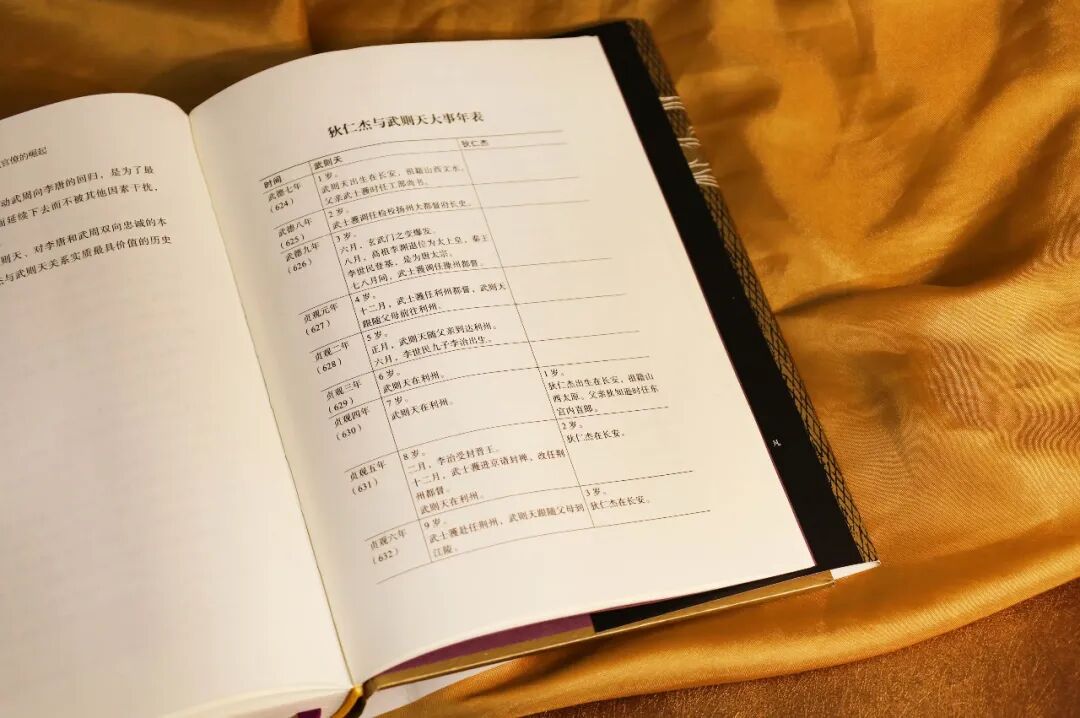 官僚的崛起
动武周向李唐的回归，是为了最
而延续下去而不被其他因素干扰，
则天、对李唐和武周双向忠诚的本
与武则天关系实质最具价值的历史
狄仁杰与武则天大事年表
时间 武则天 狄仁杰
武德七年
（624）
1岁。
武则天出生在长安，祖籍山西文水。
父亲武士彟时任工部尚书。
武德八年
（625）
2岁。
武士彟调任检校扬州大都督府长史。
武德九年
（626）
3岁。
六月，玄武门之变爆发。
八月，高祖李渊退位为太上皇，秦王
李世民登基，是为唐太宗。
七八月间，武士彟调任豫州都督。
贞观元年
（627）
4岁。
十二月，武士彟任利州都督，武则天
跟随父母前往利州。
贞观二年
（628）
5岁。
正月，武则天随父亲到达利州。
六月，李世民九子李治出生。
贞观三年
（629）
6岁。
武则天在利州。
贞观四年
（630）
7岁。
武则天在利州。
1岁。
狄仁杰出生在长安，祖籍山
西太原。父亲狄知逊时任东
宫内直郎。
贞观五年
（631）
8岁。
二月，李治受封晋王。
十二月，武士彟进京请封禅，改任荆
州都督。
武则天在利州。
2岁。
狄仁杰在长安。
贞观六年
（632）
9岁。
武士彟赴任荆州，武则天跟随父母到
江陵。
3岁。
狄仁杰在长安。